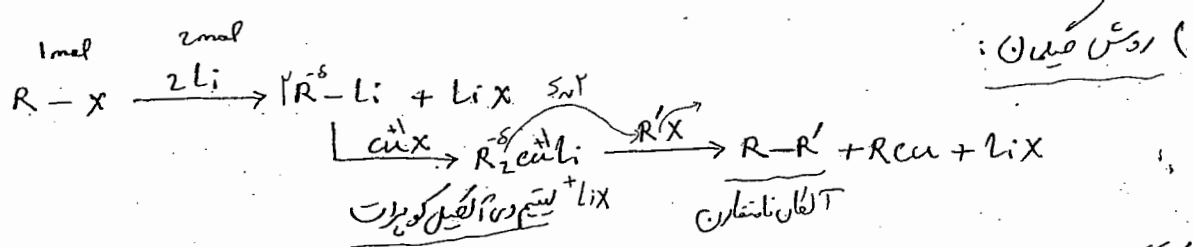 ) روش گیلمان :
1mol 2mol
R – X 2Li → ۲R⁻ᵟ–Li + LiX
Cu⁺¹X → R₂⁻ᵟCu⁺¹Li S_N۲ R′X → R–R′ + RCu + LiX
لیتیم دی آلکیل کوپرات +LiX آلکان نامتقارن